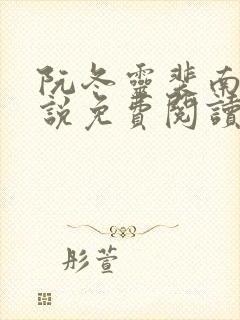 阮冬靈裴南
說免費閱讀
彤萱